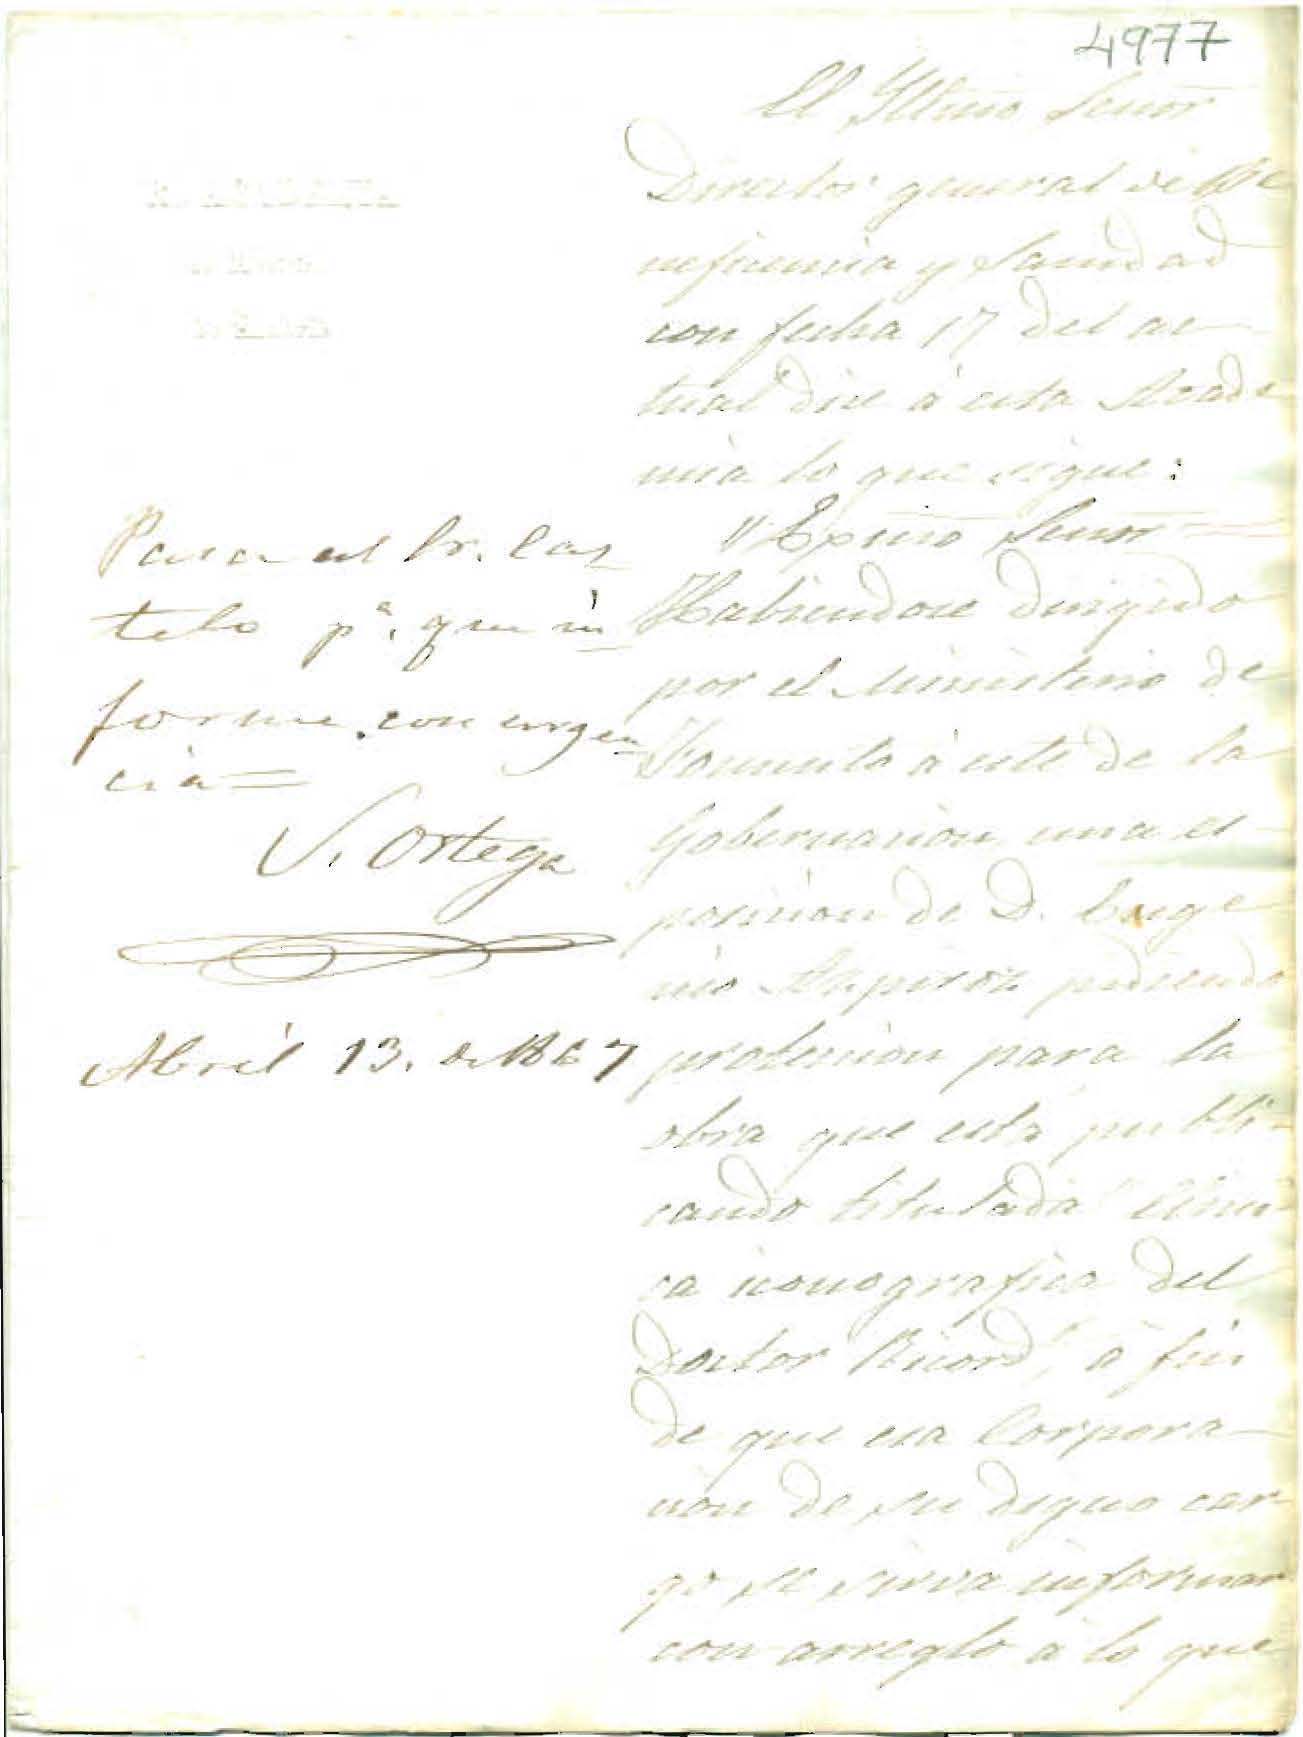 4977
El Yltmo Señor
Director general de Be
neficencia y Sanidad
con fecha 17 del ac-
tual dice á esta Acade
mia lo que sigue:
"Exmo Señor=
Habiendose dirigido
por el Ministerio de
Fomento á este de la
Gobernacion una es-
posicion de D. Euge
nio pidiendo
proteccion para la
obra que está publi-
cando titulada "Clini-
ca iconografica del
Doctor Ricord", á fin
de que esa Corpora-
cion de su digno car-
go se sirva informar
con arreglo á lo que
Pasa al Sr. Cas
telo pª. que in
forme con urgen
cia=
S. Ortega
Abril 13. de 1867